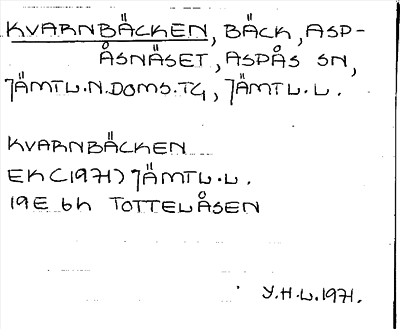 KVARNBÄCKEN, BÄCK, ASP-
ÅSNÄSET, ASPÅS SN,
JÄMTL.N.DOMS.TG, JÄMTL.L.
KVARNBÄCKEN
EK(1971) JÄMTL.L.
19E 6h TOTTELÅSEN
Y.H.L.1971.